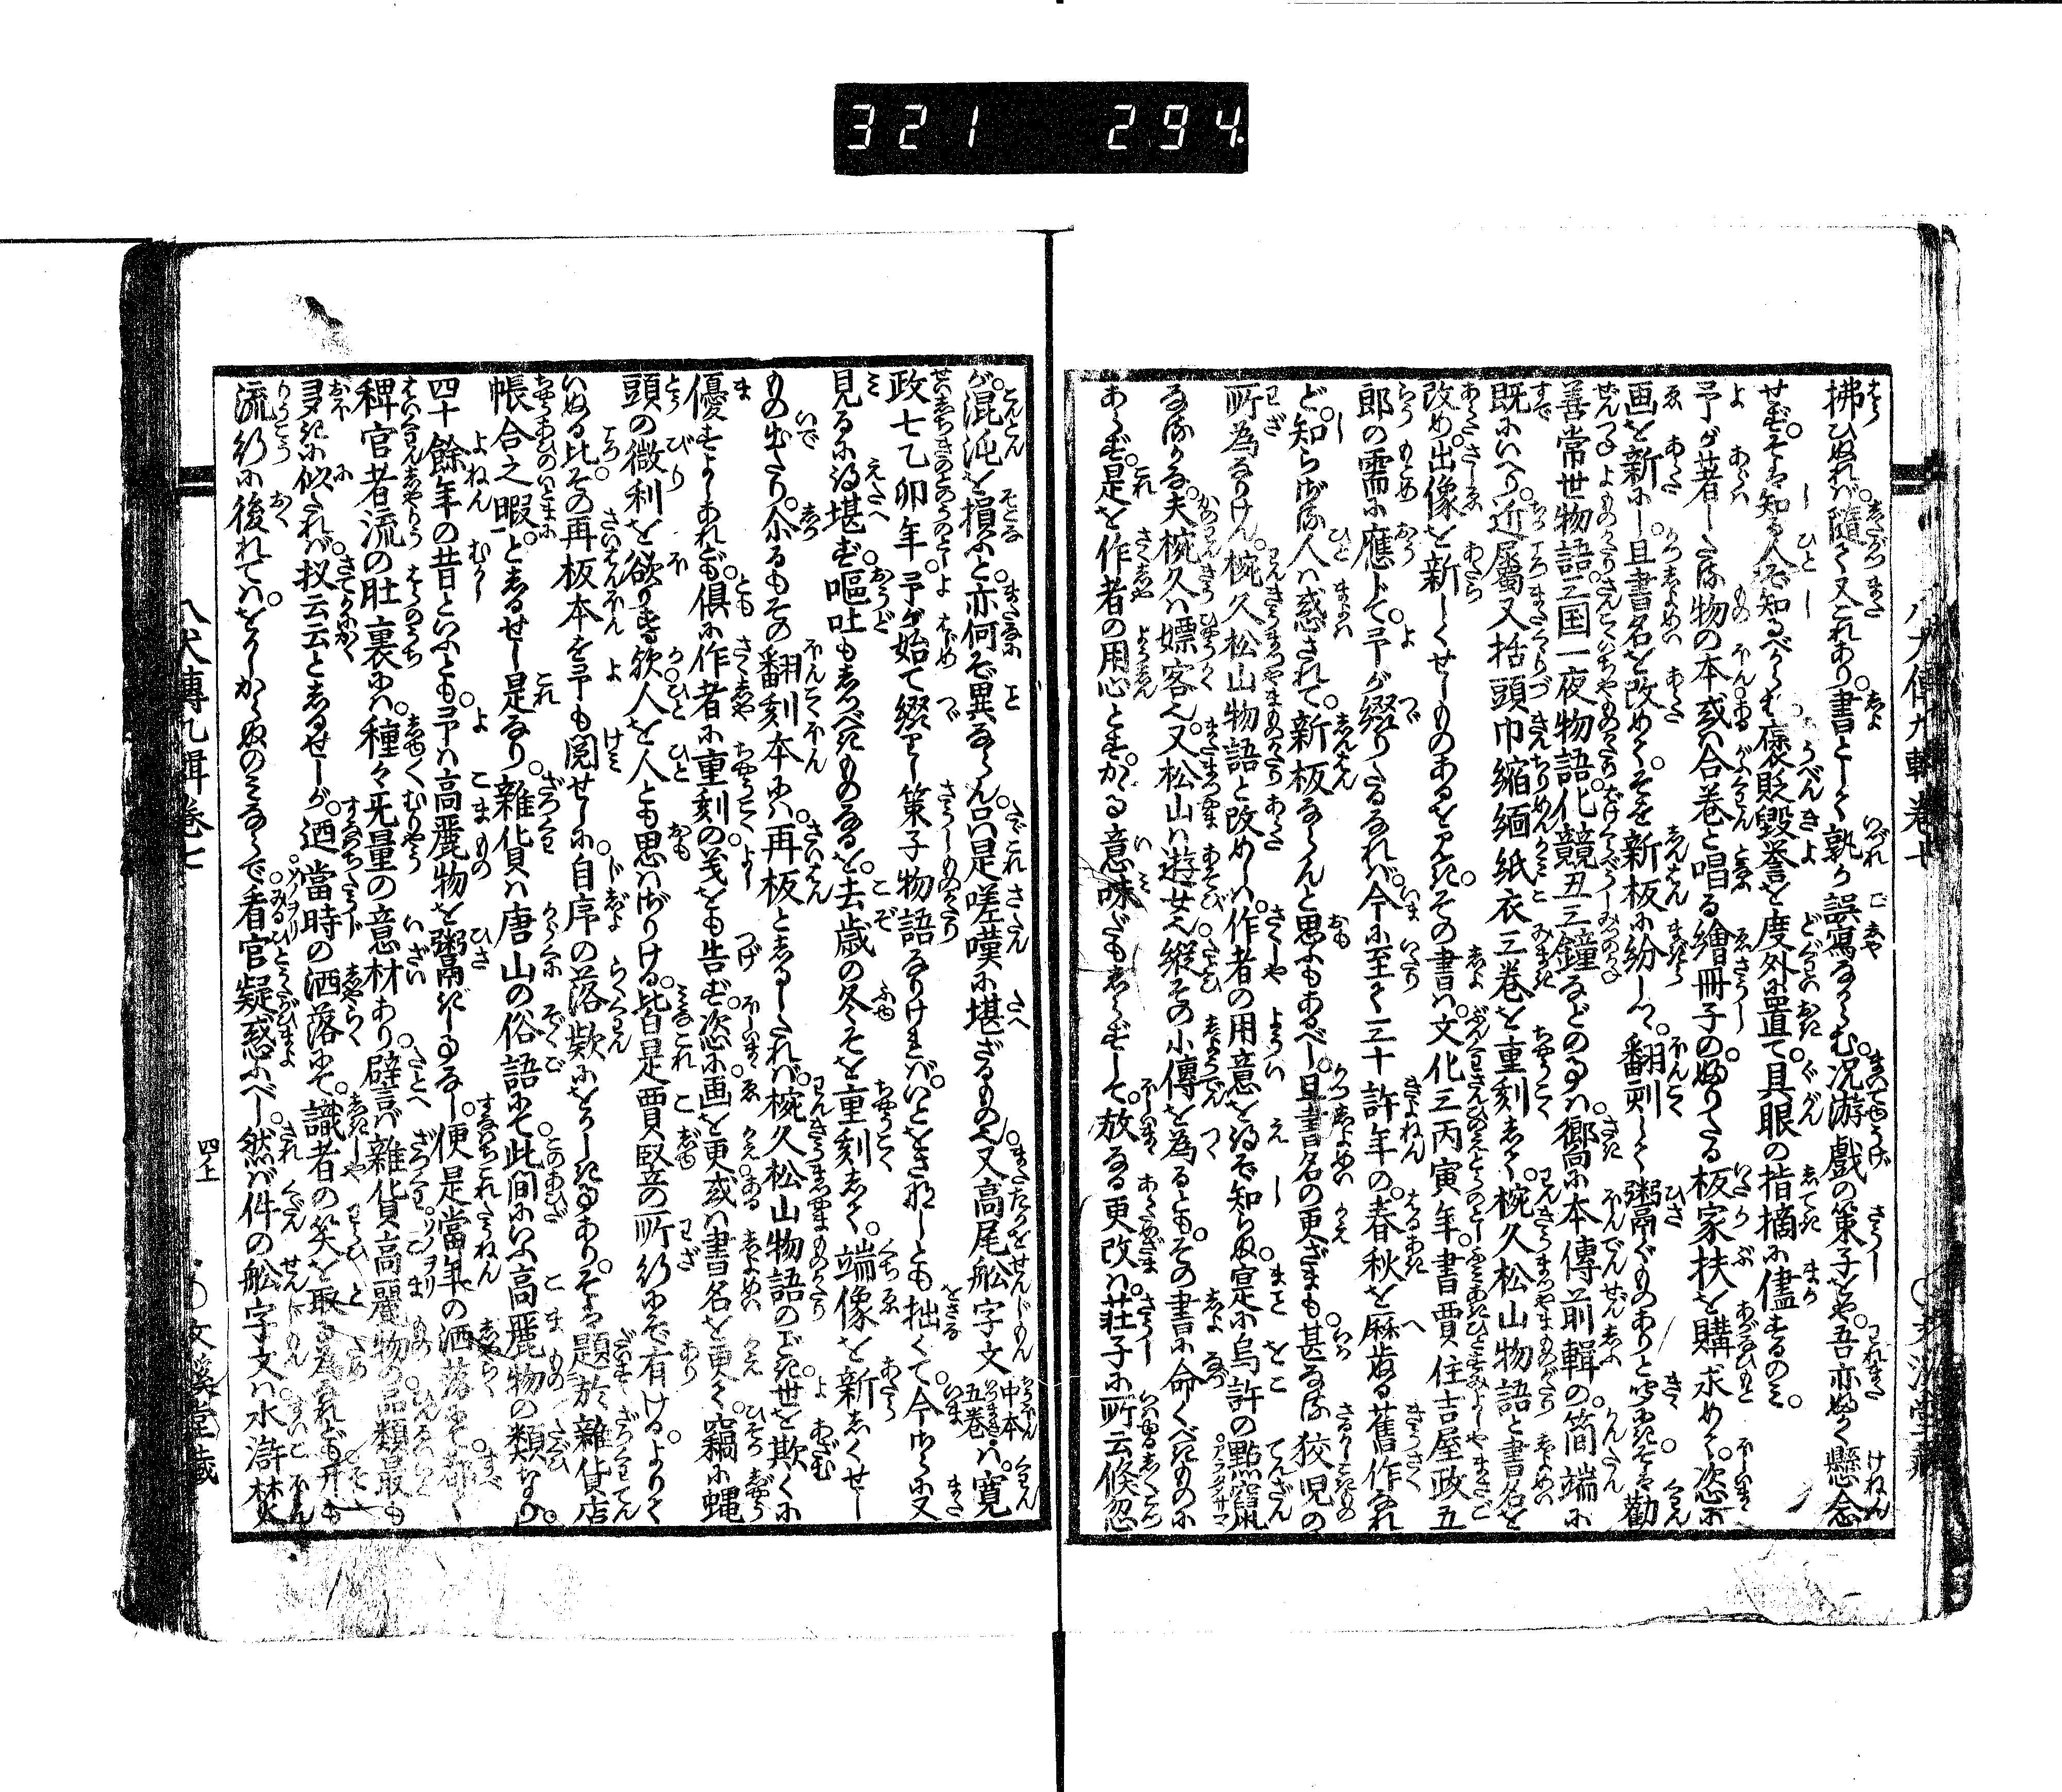 321 294
拂ひぬれバ隨て又これあり。書として孰か誤寫なからむ。况游戯の策子をや。吾亦好て懸念
せず。そを知る人ぞ知るべからむ。褒貶毀誉を度外に置て。具眼の指摘に儘するのミ。
予が著したる物の本。或ハ合巻と唱る繪冊子の。好りたる板家扶を購求めて。恣に
画を新にし。且書名を改めて。そを新板に紛しつ。翻刻して粥ぐものありと聞にき。そハ勸
善常世物語。三国一夜物語。化競丑三鐘などの事ハ。嚮に本傳前輯の簡端に
既にいへり。近属又括頭巾縮緬紙衣三巻を重刻して。椀久松山物語と書名を
改め。出像を新しくせしものあるを見き。その書ハ。文化三丙寅年。書賈住吉屋政五
郎の需に應じて。予が綴りたるなれバ。今に至て三十許年の。春秋を麻歴る舊作なれ
ど。知らざる人ハ惑されて。新板ならんと思ふもあるべし。且書名の更ざまも。甚なる狡児の
所為なりけん。椀久松山物語と改めしハ。作者の用意を得ぞ知らぬ。寔に烏許の點竄
なるかな。夫椀久ハ嫖客也。又松山ハ遊女也。縦その小傳を為るとも。その書に命くべきものに
あらず。是を作者の用心とす。かゝる意味だも知らずして。放なる更改ハ。莊子に所云倏忽
が。混沌を損ふと。亦何ぞ異ならん。只是嗟嘆に堪ざるもの也。又高尾舩字文中本五巻ハ。寛
政七乙卯年。予が始て綴りし策子物語なりけれバ。いとをさなしとも拙くて。今さらに又
見るに得堪ず。嘔吐もしつべきものなるを。去歳の冬そを重刻して。端像を新しくせし
もの出たり。尓るもその翻刻本にハ。再板としるしたれバ。椀久松山物語のごとき世を欺くに
優すよしあれども。倶に作者に重刻の義をも告ず。恣に画を更。或ハ書名を更て。竊に蝿
頭の微利を欲りする。欲人を人とも思ハざりける。皆是賈竪の所行にぞ有ける。よりて
いぬる比。その再板本を予も閲せしに。自序の落款にをかしき事あり。そハ題於雜貨店
帳合之暇。としるせし是なり。雜貨ハ唐山の俗語にて。此間にいふ高麗物の類なり。
四十餘年の昔といふとも。予ハ高麗物を粥ぎし事なし。便是當年の洒落にて。都て
稗官者流の肚裏にハ。種々无量の意材あり。譬ば雜貨高麗物の品類最も
多きに似たれバ。扠云云としるせしが。廼當時の洒落にて。識者の笑を取る為なれども。
流行に後れてハ。をかしからぬのミならで。看官疑惑ふべし。然バ件の舩字文ハ。水滸・焚
八犬傳九輯巻七
四上
文溪堂藏